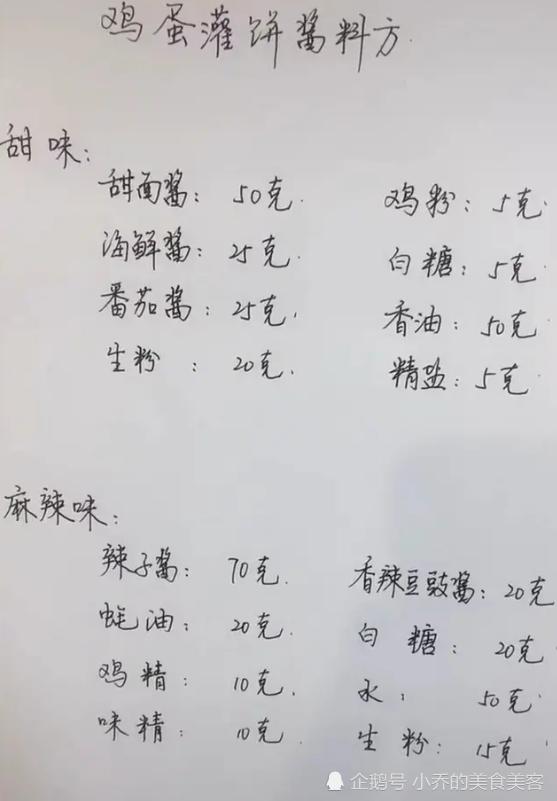 鸡蛋灌饼酱料方.
甜味:
甜面酱: 50克. 鸡粉: 5克.
海鲜酱: 25克. 白糖: 5克.
番茄酱: 25克. 香油: 50克.
生粉: 20克. 精盐: 5克.
麻辣味:
辣子酱: 70克. 香辣豆豉酱: 20克
蚝油: 20克. 白糖: 20克.
鸡精: 10克. 水: 50克.
味精: 10克. 生粉: 15克.
企鹅号 小乔的美食美客